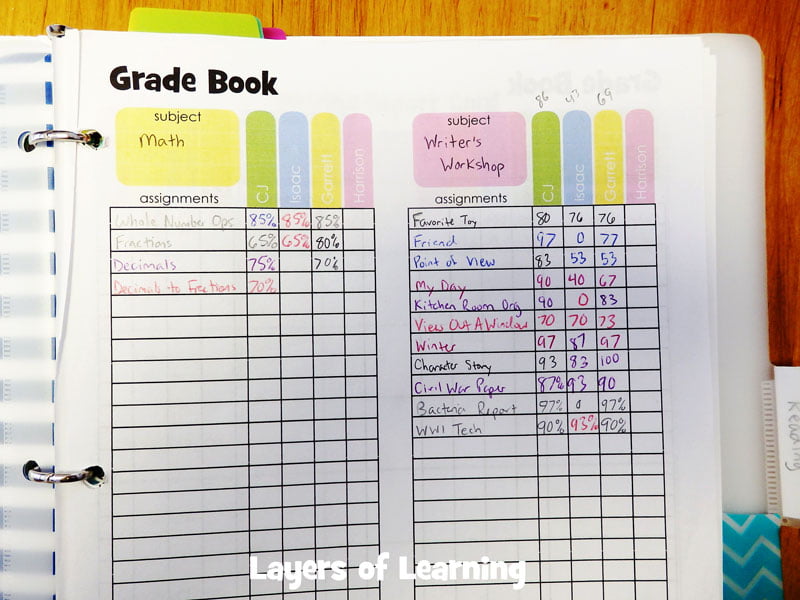 Grade Book
subject
Math
CJ Isaac Garrett Harrison
assignments
Whole Number Ops 85% 85% 85%
Fractions 65% 65% 80%
Decimals 75% 70%
Decimals to Frections 70%
86 43 69
subject
Writer's
Workshop
CJ Isaac Garrett Harrison
assignments
Favorite Toy 80 76 76
Friend 97 0 77
Point of View 83 53 53
My Day 90 40 67
Kitchen Room Org 90 0 83
View Out A Window 70 70 73
Winter 97 87 97
Character Story 93 83 100
Civil War Paper 87% 93 90
Bacteria Report 97% 0 97%
WWI Tech 90% 93% 90%
Reading
Layers of Learning